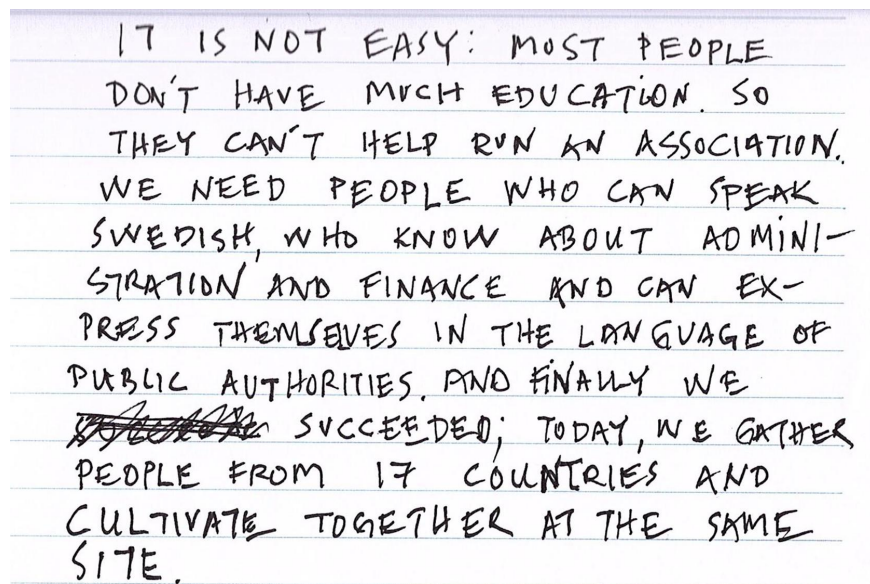 IT IS NOT EASY: MOST PEOPLE
DON'T HAVE MUCH EDUCATION. SO
THEY CAN'T HELP RUN AN ASSOCIATION.
WE NEED PEOPLE WHO CAN SPEAK
SWEDISH, WHO KNOW ABOUT ADMINI-
STRATION AND FINANCE AND CAN EX-
PRESS THEMSELVES IN THE LANGUAGE OF
PUBLIC AUTHORITIES. AND FINALLY WE
SUCCEEDED; TODAY, WE GATHER
PEOPLE FROM 17 COUNTRIES AND
CULTIVATE TOGETHER AT THE SAME
SITE.